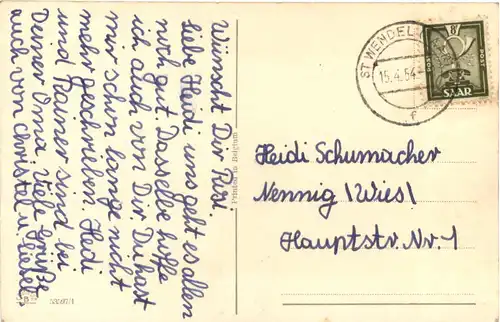 Wünscht Dir Rüsl.
liebe Heidi uns geht es allen
noch gut. Dasselbe hoffe
ich auch von Dir. Du hast
mir schon lange nicht
mehr geschrieben. Hedi
und Rainer sind bei
Deiner Oma. Viele Grüße
auch von Christel u.
Printed in Belgium
ST. WENDEL
15.4.54
f
8
POST
POST
SAAR
Heidi Schumacher
Nennig /Wies/
Hauptstr. Nr. 1